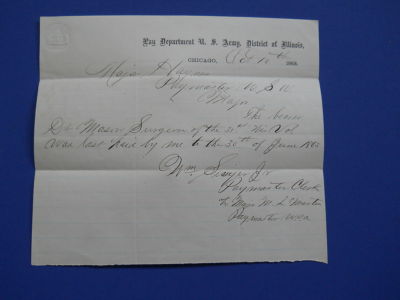 Pay Department U. S. Army, District of Illinois,
CHICAGO, Oct 12th 186
Major
Paymaster U S A
Major
The bearer
Dr Mason Surgeon of the 31st Vol
was last paid by me to the 30th of June 1865
Wm Jr
Paymaster Clerk
to Major M. L. Martin
Paymaster USA